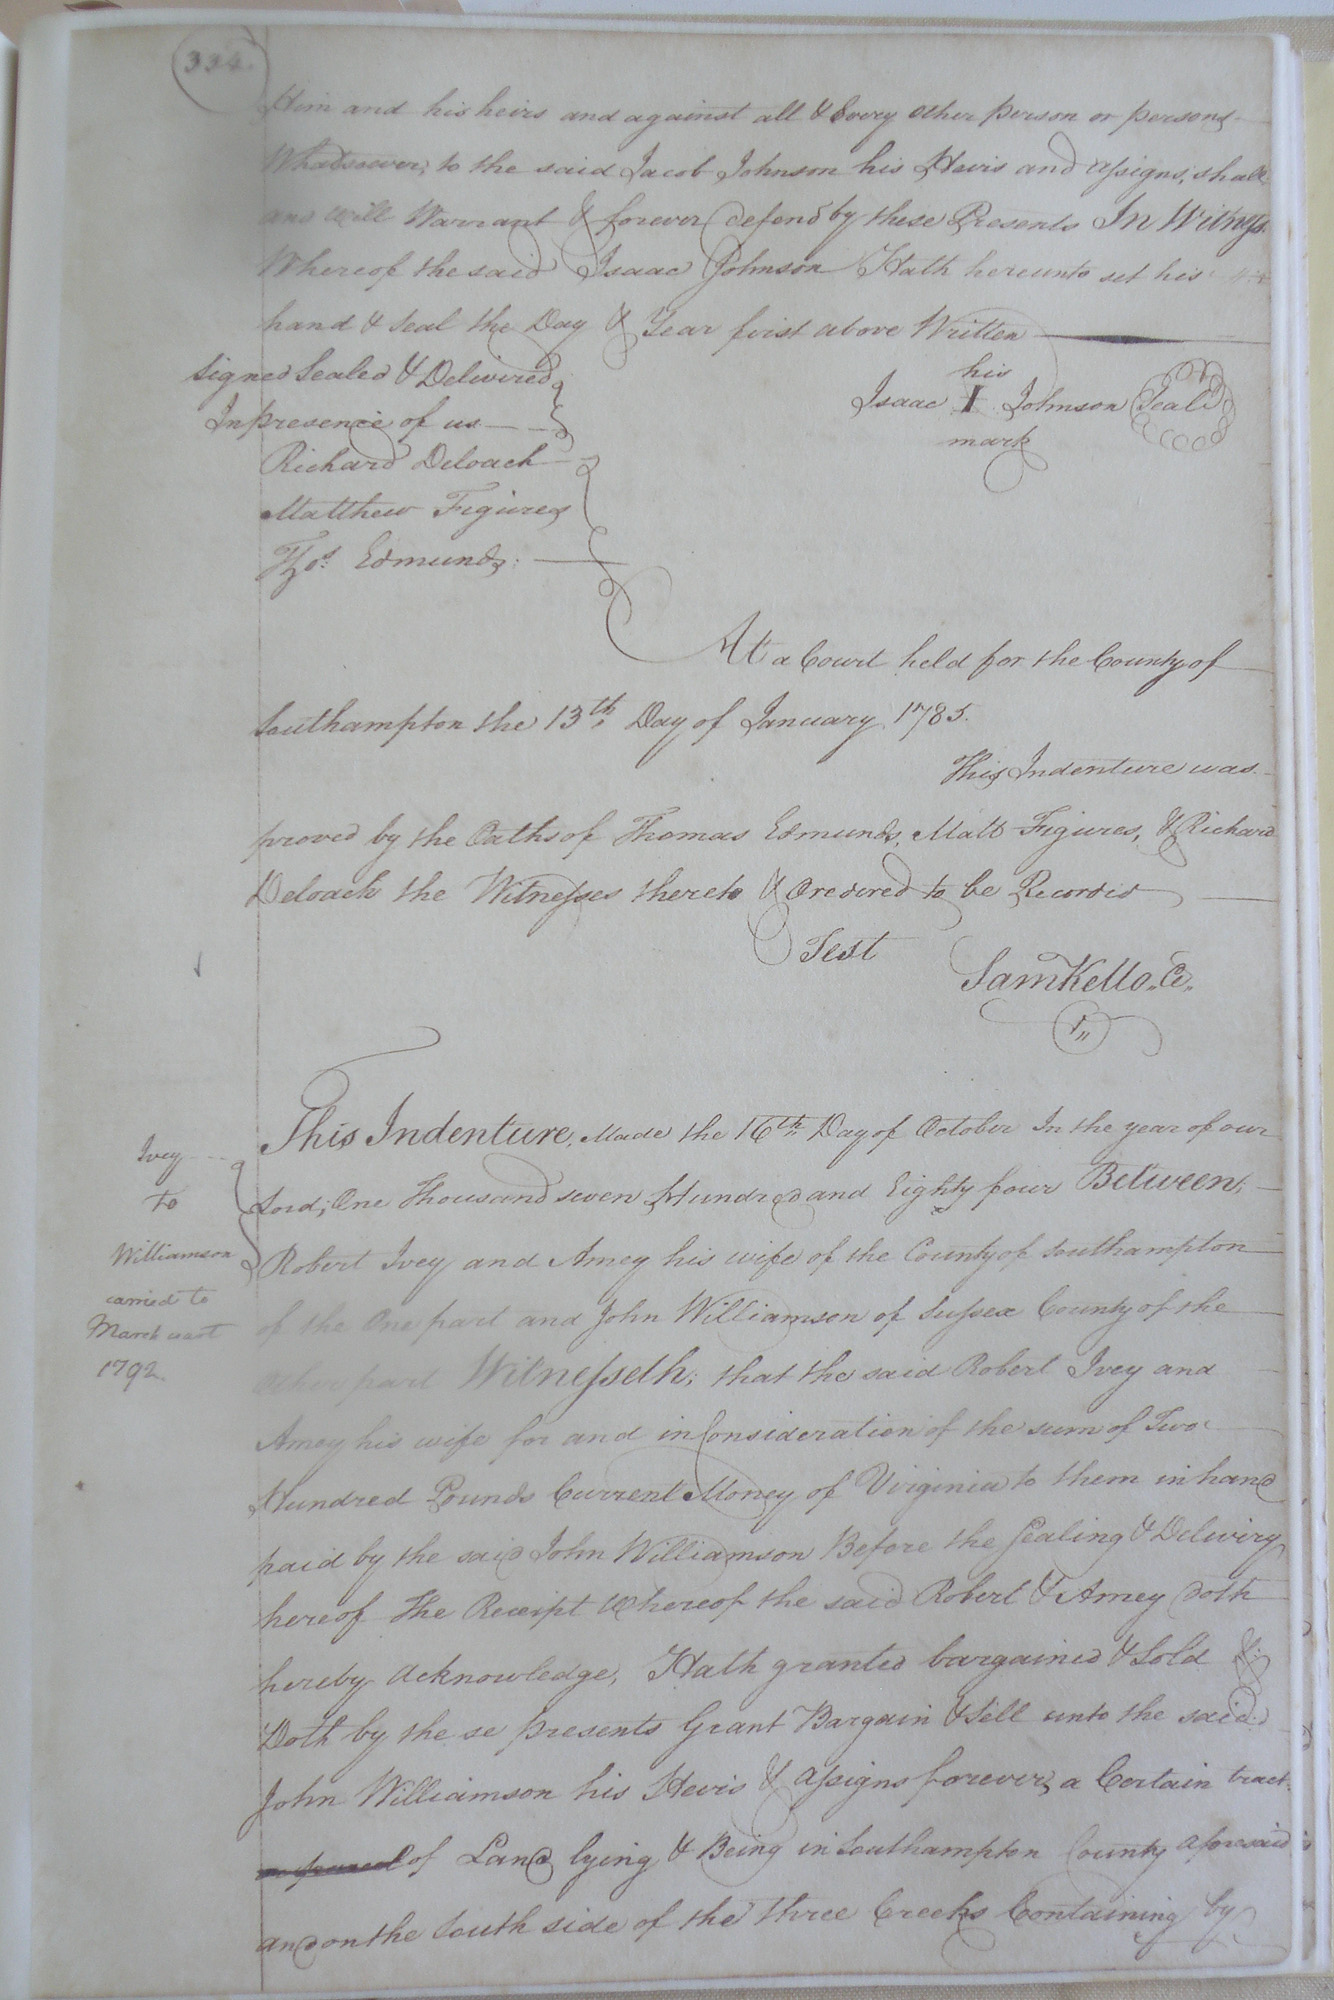 334.
Him and his heirs and against all & Every other person or persons
Whatsoever; to the said Jacob Johnson his Hevis and assigns, shall
and will Warrant & forever defend by these Presents In Witness.
Whereof the said Isaac Johnson Hath hereunto set his
hand & seal the Day & Year first above Written
Signed Sealed & Delivired
In presence of us
Richard Deloach
Matthew Figures
Thos. Edmunds.
his
Isaac I Johnson Seal
mark
At a Court held for the County of
Southampton the 13th Day of January 1785.
This Indenture was
proved by the Oaths of Thomas Edmunds, Matt Figures, & Richard
Deloach the Witnesses thereto & Oredered to be Recordid
Test
Sam Kello,, C,,
Ivey
To
Williamson
carried to
March court
1792.
This Indenture, Made the 16th Day of October In the year of our
Lord; One Thousand seven Hundred and Eighty four Between,
Robert Ivey and Amey his wife of the County of Southampton
of the One part and John Williamson of Sussex County of the
other part Witnesseth; that the said Robert Ivey and
Amey his wife for and in Consideration of the sum of Two
Hundred Pounds Current Money of Virginia to them in hand
paid by the said John Williamson Before the Sealing & Deliviry
hereof The Receipt Whereof the said Robert & Amey doth
hereby acknowledge, Hath granted bargained & Sold &
Doth by the se presents Grant Bargain & Sell unto the said
John Williamson his Hevis & assigns forever, a Certain tract
of Land lying & Being in Southampton County aforesaid
and on the South side of the three Creeks Containing by